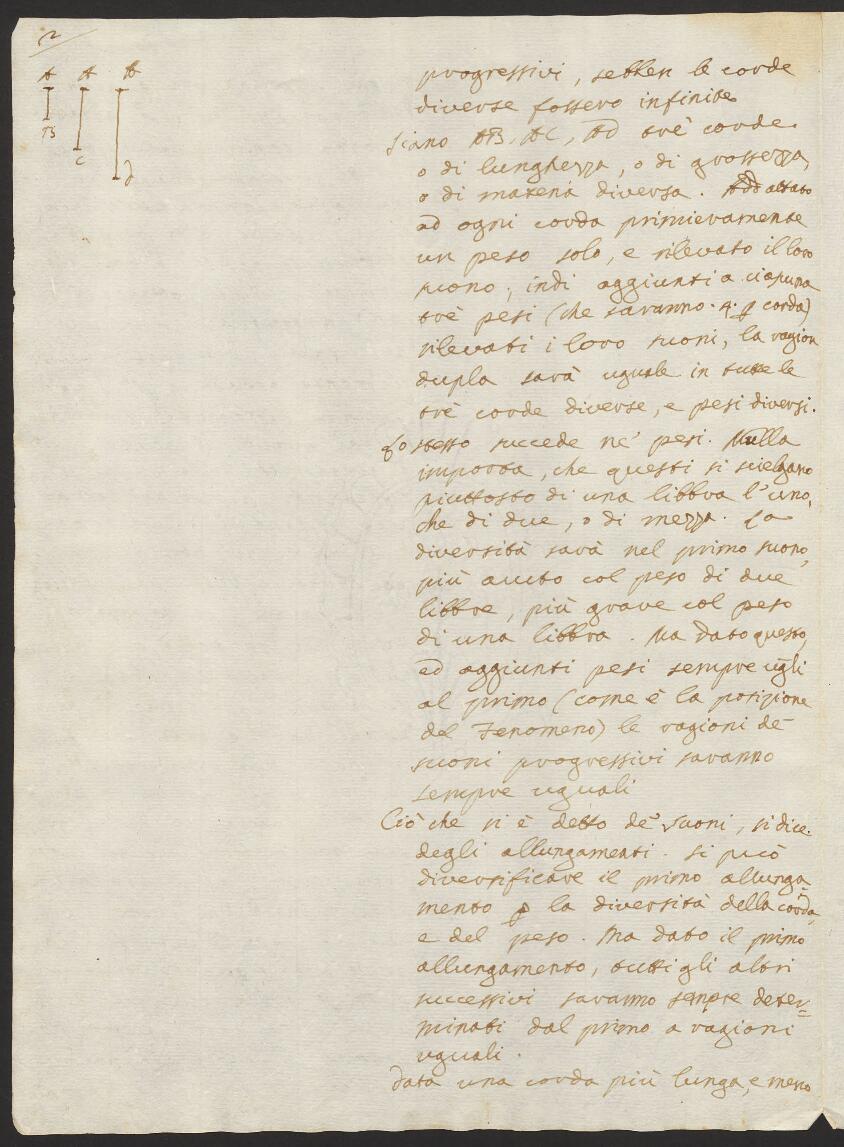 2
A A A
B
C
D
progressivi, sebben le corde
diverse fossero infinite.
Siano AB, AC, AD trè corde
o di lunghezza, o di grossezza,
o di materia diversa. Addattato
ad ogni corda primieramente
un peso solo, e rilevato il loro
suono; indi aggiunti a ciascuna
trè pesi (che saranno. 4. ꝑ corda)
rilevati i loro suoni, la ragion
dupla sarà uguale in tutte le
trè corde diverse, e pesi diversi.
Lo stesso succede ne' pesi. Nulla
importa, che questi si scielgano
piuttosto di una libbra l'uno,
che di due, o di mezza. La
diversità sarà nel primo suono,
più acuto col peso di due
libbre, più grave col peso
di una libbra. Ma dato questo,
ed aggiunti pesi sempre ugli
al primo (come è la posizione
del Fenomeno) le ragioni de'
suoni progressivi saranno
sempre uguali
Ciò che si è detto de' suoni, si dice
degli allungamenti. Si può
diversificare il primo allunga
mento ꝑ la diversità della corda,
e del peso. Ma dato il primo
allungamento, tutti gli altri
successivi saranno sempre deter=
minati dal primo a ragioni
uguali.
Data una corda più lunga, e meno